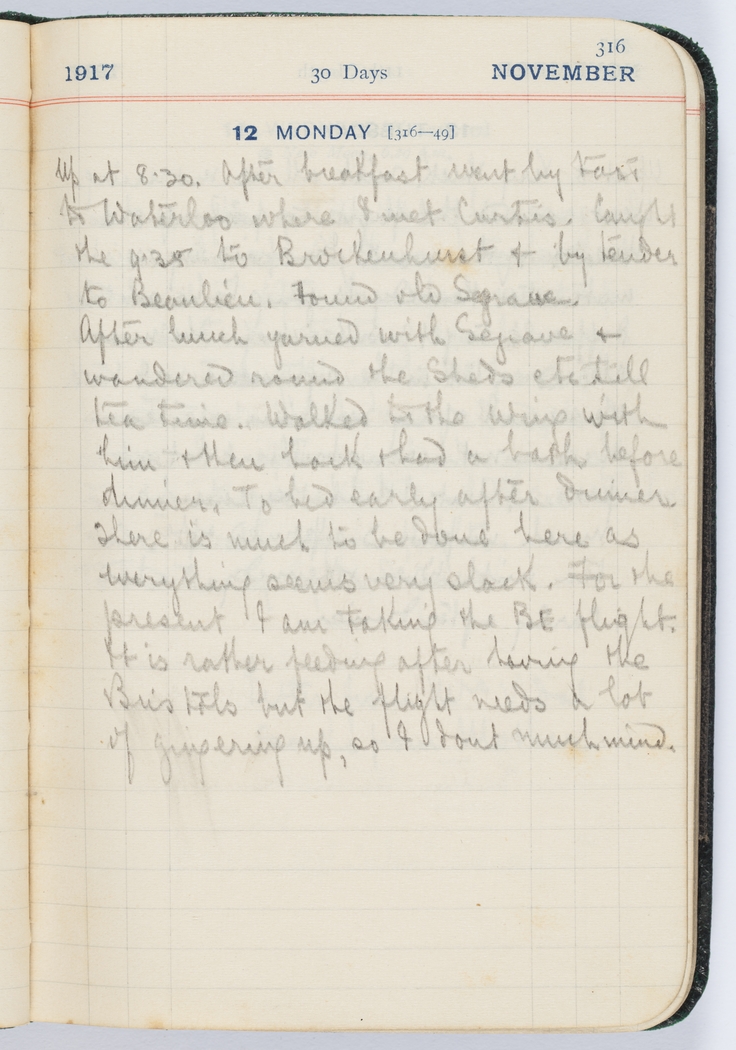 316
1917 30 Days NOVEMBER
12 MONDAY [316—49]
Up at 8.30. After breakfast went by taxi
to Waterloo where I met Curtis. Caught
the 9.35 to Brockenhurst & by tender
to Beaulieu. Found old Segrave.
After lunch yarned with Segrave &
wandered round the Sheds etc till
tea time. Walked to the Wing with
him & then back & had a bath before
dinner. To bed early after dinner
There is much to be done here as
everything seems very slack. For the
present I am taking the BE flight.
It is rather feeding after having the
Bristols but the flight needs a lot
of gingering up, so I dont much mind.